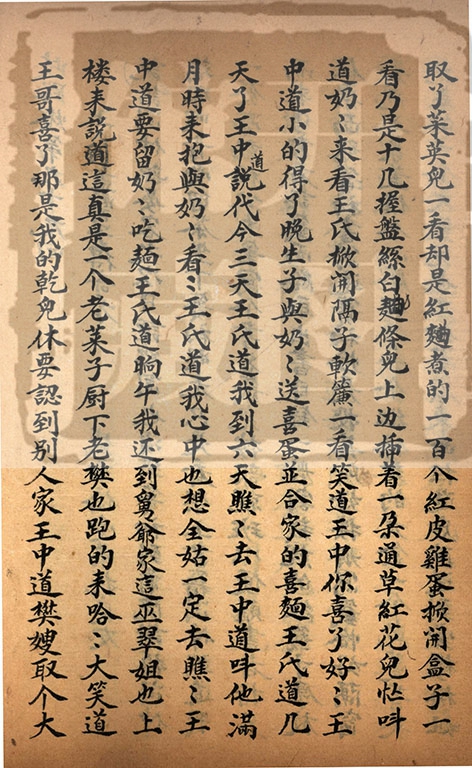 取了茱英兒一看却是紅麯煮的一百个紅皮雞蛋掀開盒子一
看乃是十几握盤絲白麵條兒上边揷着一朶通草紅花兒忙呌
道奶〻来看王氏掀開隔子軟簾一看笑道王中你喜了好〻王
中道小的得了晚生子與奶〻送喜蛋並合家的喜麵王氏道几
天了王中說道代今三天王氏道我到六天瞧〻去王中道呌他滿
月時来抱與奶〻看〻王氏道我心中也想全姑一定去瞧〻王
中道要留奶〻吃麵王氏道晌午我还到舅爺家這巫翠姐也上
楼来說道這真是一个老菜子厨下老樊也跑的来哈〻大笑道
王哥喜了那是我的乾兒休要認到别人家王中道樊嫂取个大